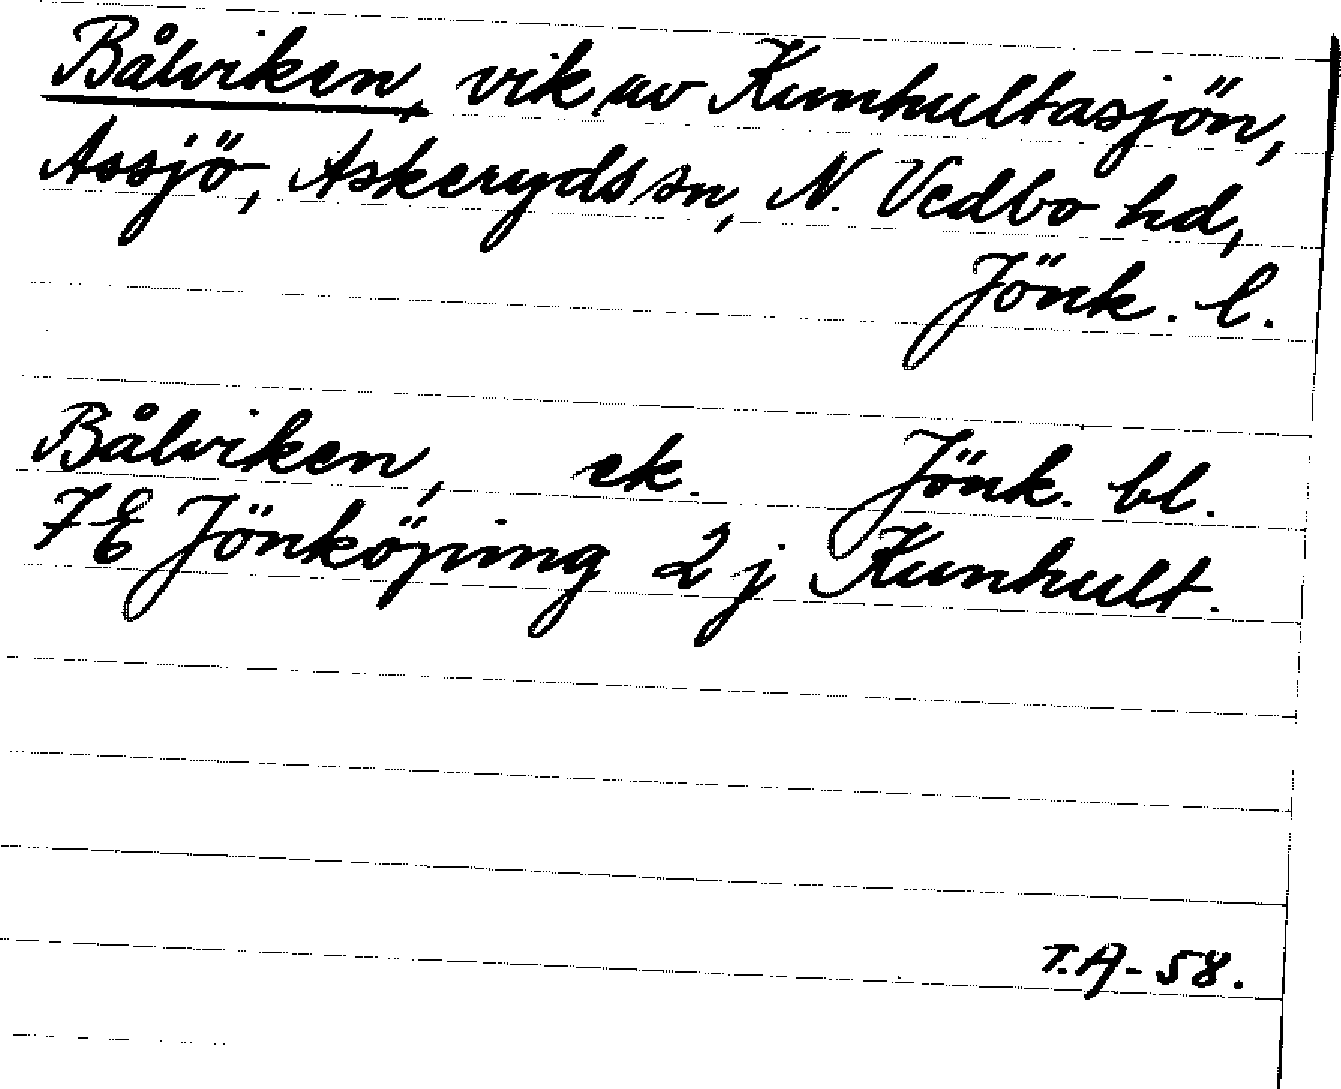 Bålviken, vik av Kunhultasjön,
Assjö, Askeryds sn, N. Vedbo hd,
Jönk. l.
Bålviken, ek. Jönk. bl.
7E Jönköping 2j Kunhult.
T.A-58.